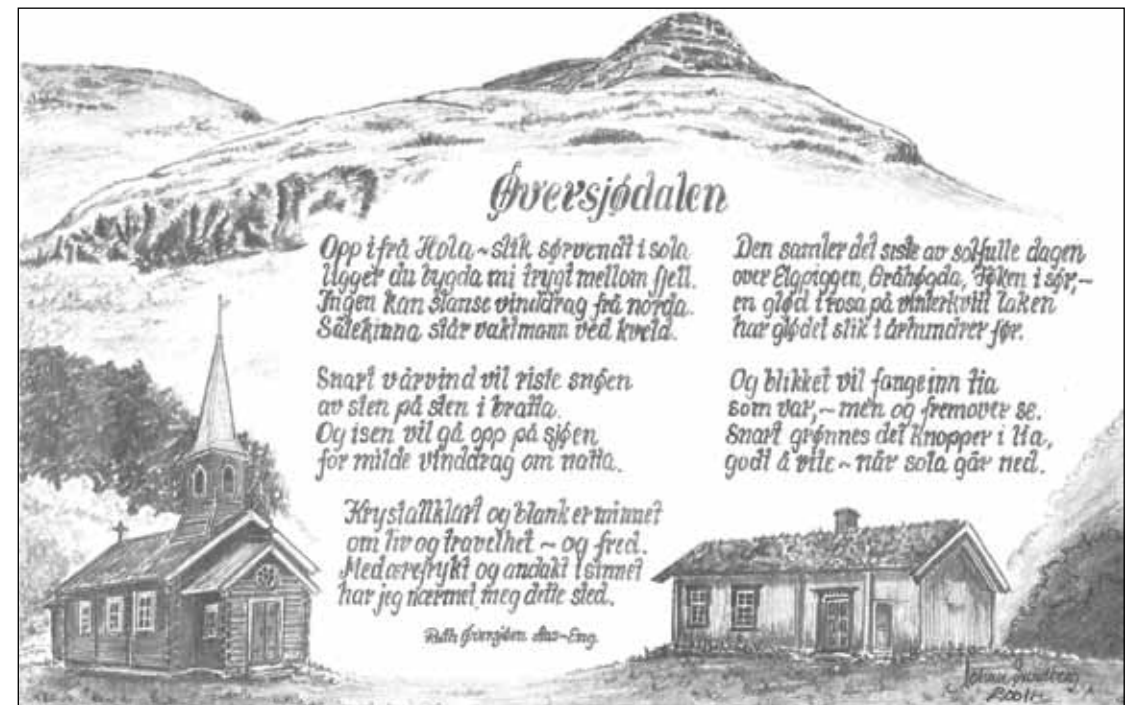 Øversjødalen
Opp ifrå Hola ~ slik sørvendt i sola
ligger du bygda mi trygt mellom fjell.
Ingen kan stanse vinddrag frå norda.
Sålekinna står vaktmann ved kveld.
Snart vårvind vil riste snøen
av sten på sten i bratta.
Og isen vil gå opp på sjøen
for milde vinddrag om natta.
Krystallklart og blank er minnet
om liv og travelhet ~ og fred.
Med ærefrykt og andakt i sinnet
har jeg nærmet meg dette sted.
Den samler det siste av solfulle dagen
over Elgpiggen, Gråhøgda, Føken i sør,–
en glød i rosa på vinterkvitt laken
har glødet slik i århundrer før.
Og blikket vil fange inn tia
som var, ~ men og fremover se.
Snart grønnes det knopper i lia,
godt å vite ~ når sola går ned.
Ruth Øversjøen Aas-Eng.